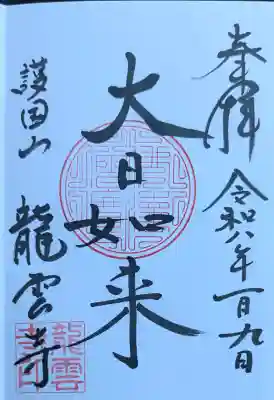 奉拝
令和八年一月九日
大日如来
護国山
龍雲寺
龍雲
寺印